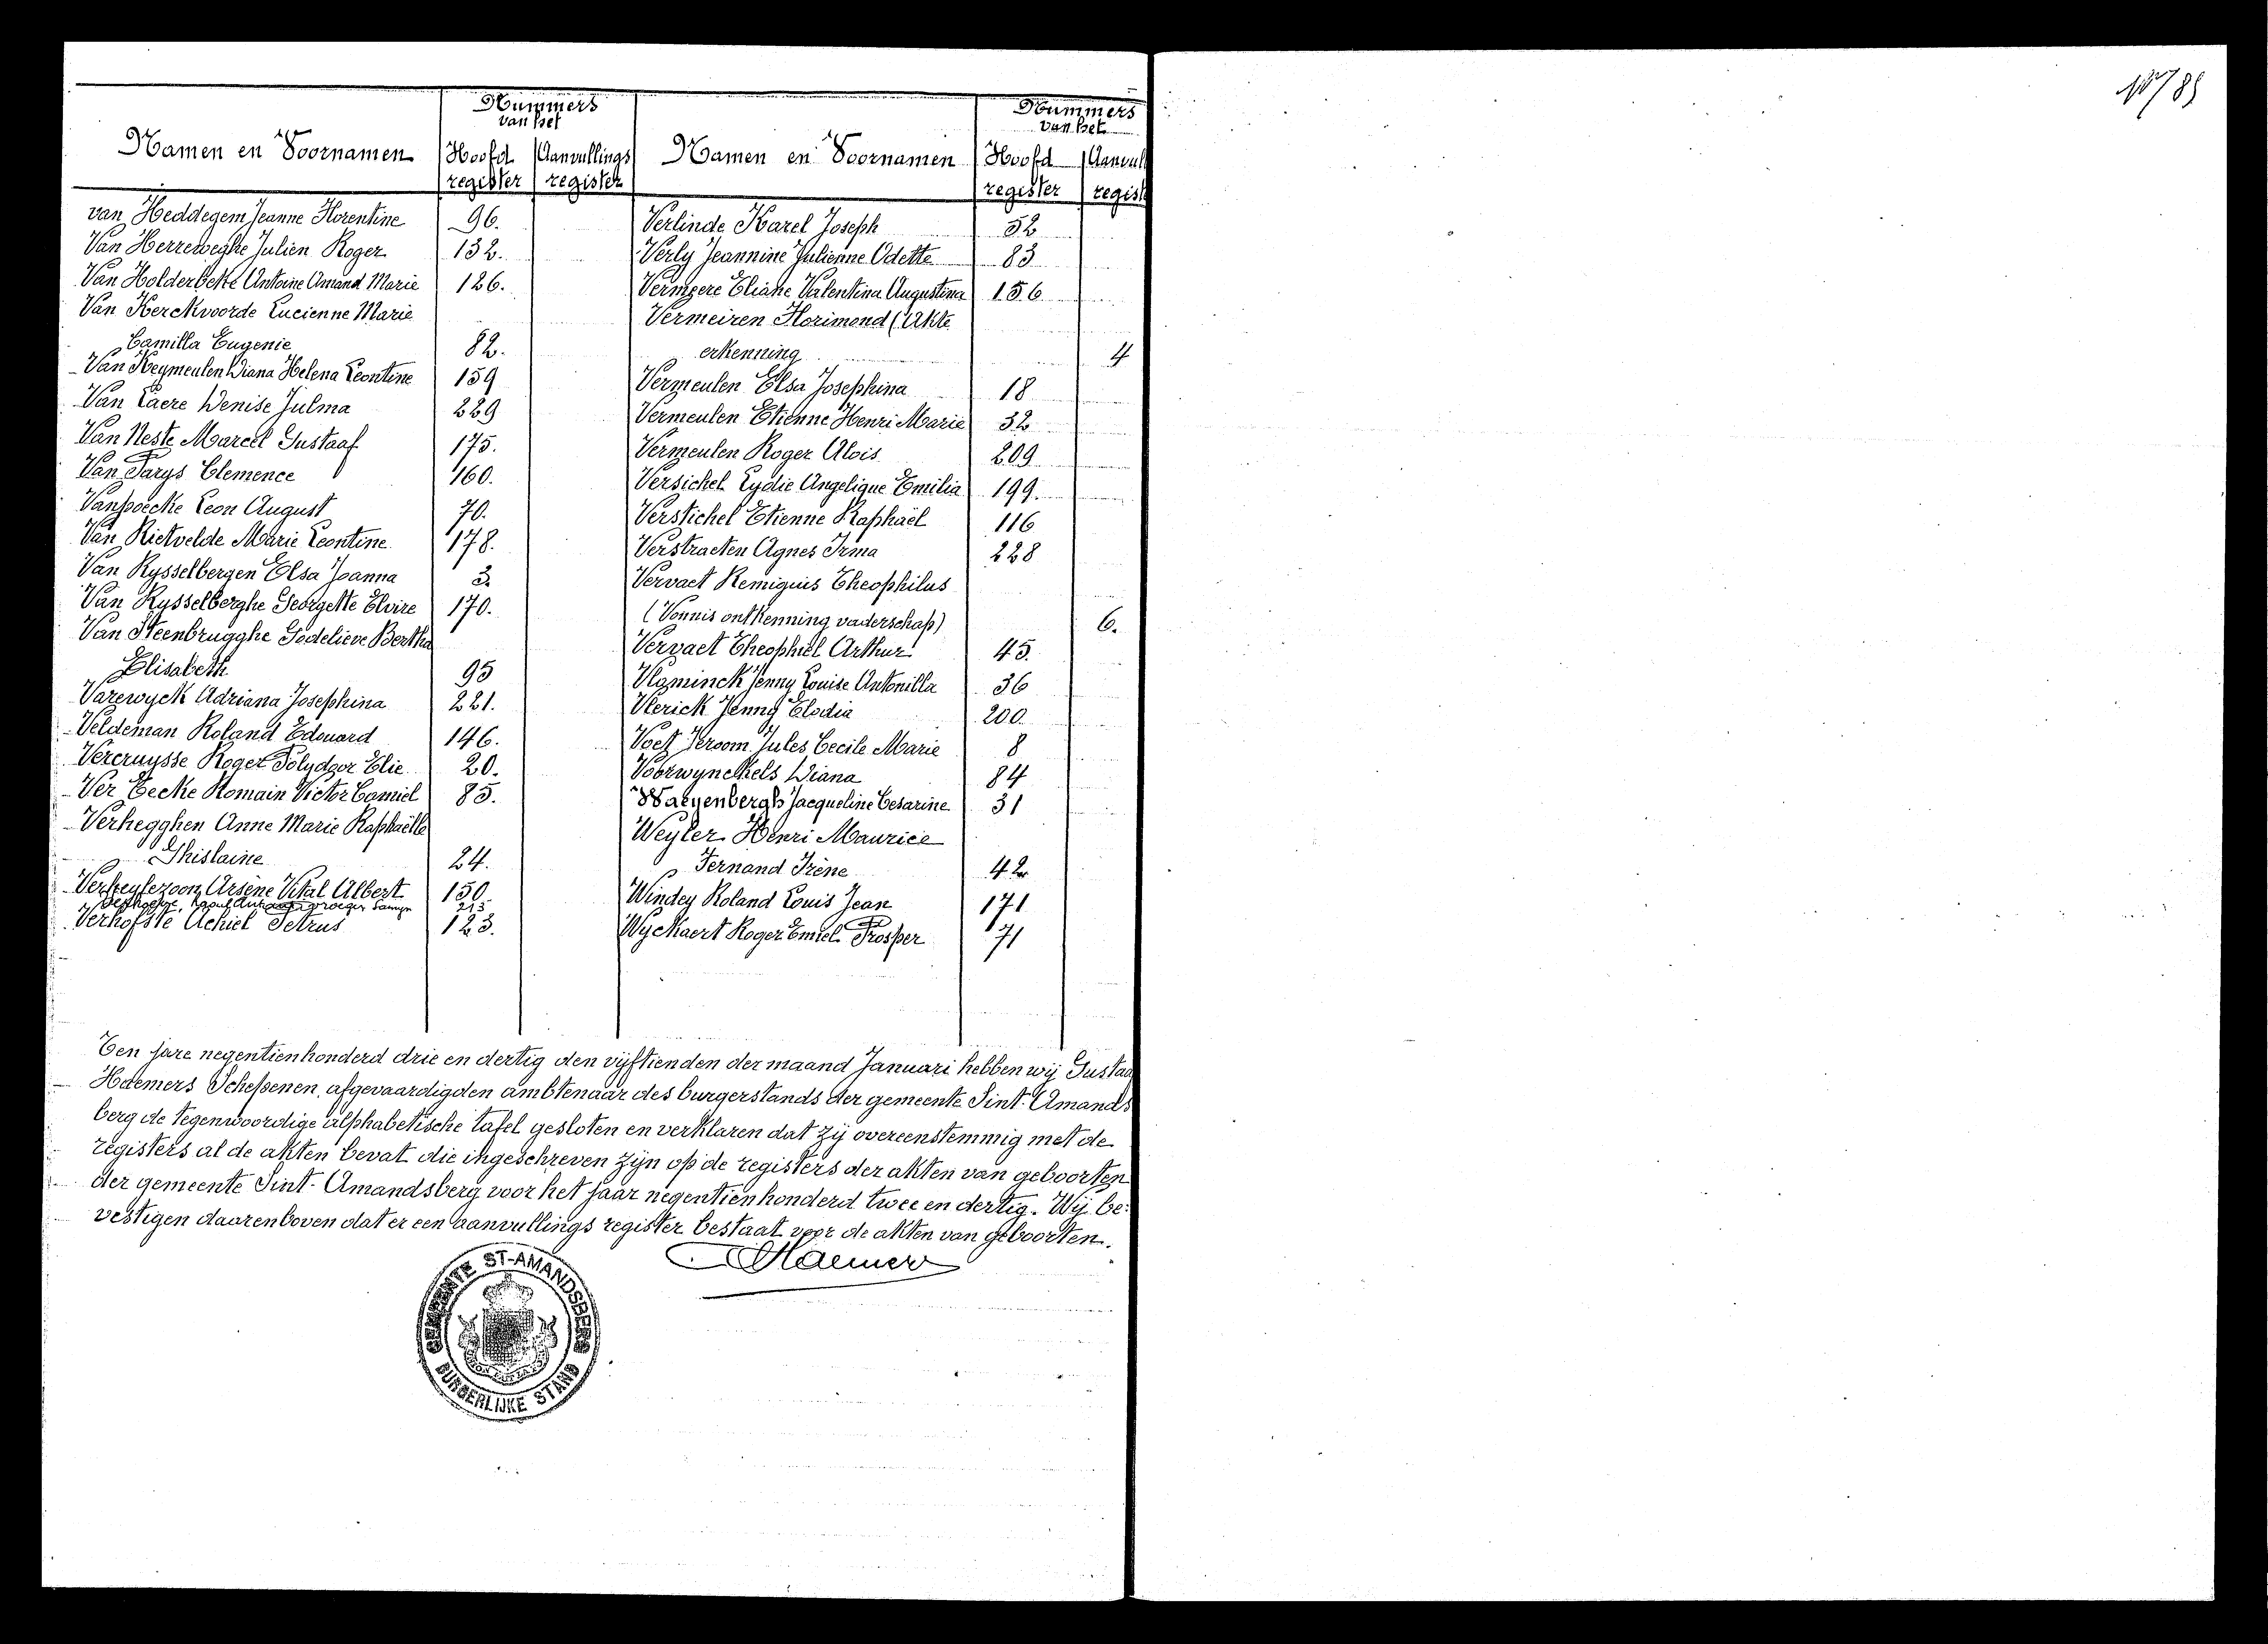 Nummers
van het
Namen en Voornamen Hoofd Aanvullings
register register
van Heddegem Jeanne Florentine 96.
Van Herreweghe Julien Roger 132.
Van Holderbeke Antoine Amand Marie 126.
Van Kerckvoorde Lucienne Marie
Camilla Eugenie 82.
Van Keymeulen Diana Helena Leontine 159
Van Laere Denise Julma 229
Van Neste Marcel Gustaaf 175.
Van Parys Clemence 160.
Vanpoecke Leon August 70.
Van Rietvelde Marie Leontine 178.
Van Rysselbergen Elsa Joanna 3.
Van Rysselberghe Georgette Elvire 170.
Van Steenbrugghe Godelieve Bertha
Elisabeth 95
Varewyck Adriana Josephina 221.
Veldeman Roland Edouard 146.
Vercruysse Roger Polydoor Elie 20.
Ver Eecke Romain Victor Camiel 85.
Verhegghen Anne Marie Raphaëlle
Ghislaine 24.
Verheylezoon Arsène Vital Albert 150
Raoul vroeger Samyn 213
Verhofste Achiel Petrus 123.
Nummers
van het
Namen en Voornamen Hoofd Aanvul
register regist
Verlinde Karel Joseph 52
Verly Jeannine Julienne Odette 83
Vermeere Eliane Valentina Augustina 156
Vermeiren Florimond (Akte
erkenning 4
Vermeulen Elsa Josephina 18
Vermeulen Etienne Henri Marie 32
Vermeulen Roger Alois 209
Versichel Lydie Angelique Emilia 199.
Verstichel Etienne Raphaël 116
Verstraeten Agnes Irma 228
Vervaet Remigius Theophilus
(Vonnis ontkenning vaderschap) 6.
Vervaet Theophiel Arthur 45.
Vlaminck Jenny Louise Antonilla 36
Vlerick Jenny Elodia 200.
Voet Jeroom Jules Cecile Marie 8
Voorwynckels Diana 84
Waeyenbergh Jacqueline Cesarine 31
Weyler Henri Maurice
Fernand Irène 42
Windey Roland Louis Jean 171
Wyckaert Roger Emiel Prosper 71
Ten jare negentienhonderd drie en dertig den vijftienden der maand Januari hebben wij Gustaa
Haemers Schepenen, afgevaardigden ambtenaar des burgerstands der gemeente Sint-Amands
berg de tegenwoordige alphabetische tafel gesloten en verklaren dat zij overeenstemmig met de
registers al de akten bevat die ingeschreven zijn op de registers der akten van geboorten
der gemeente Sint-Amandsberg voor het jaar negentienhonderd twee en dertig. Wij be:
vestigen daarenboven dat er een aanvullings register bestaat voor de akten van geboorten.
Haemers
GEMEENTE ST-AMANDSBERG
BURGERLIJKE STAND